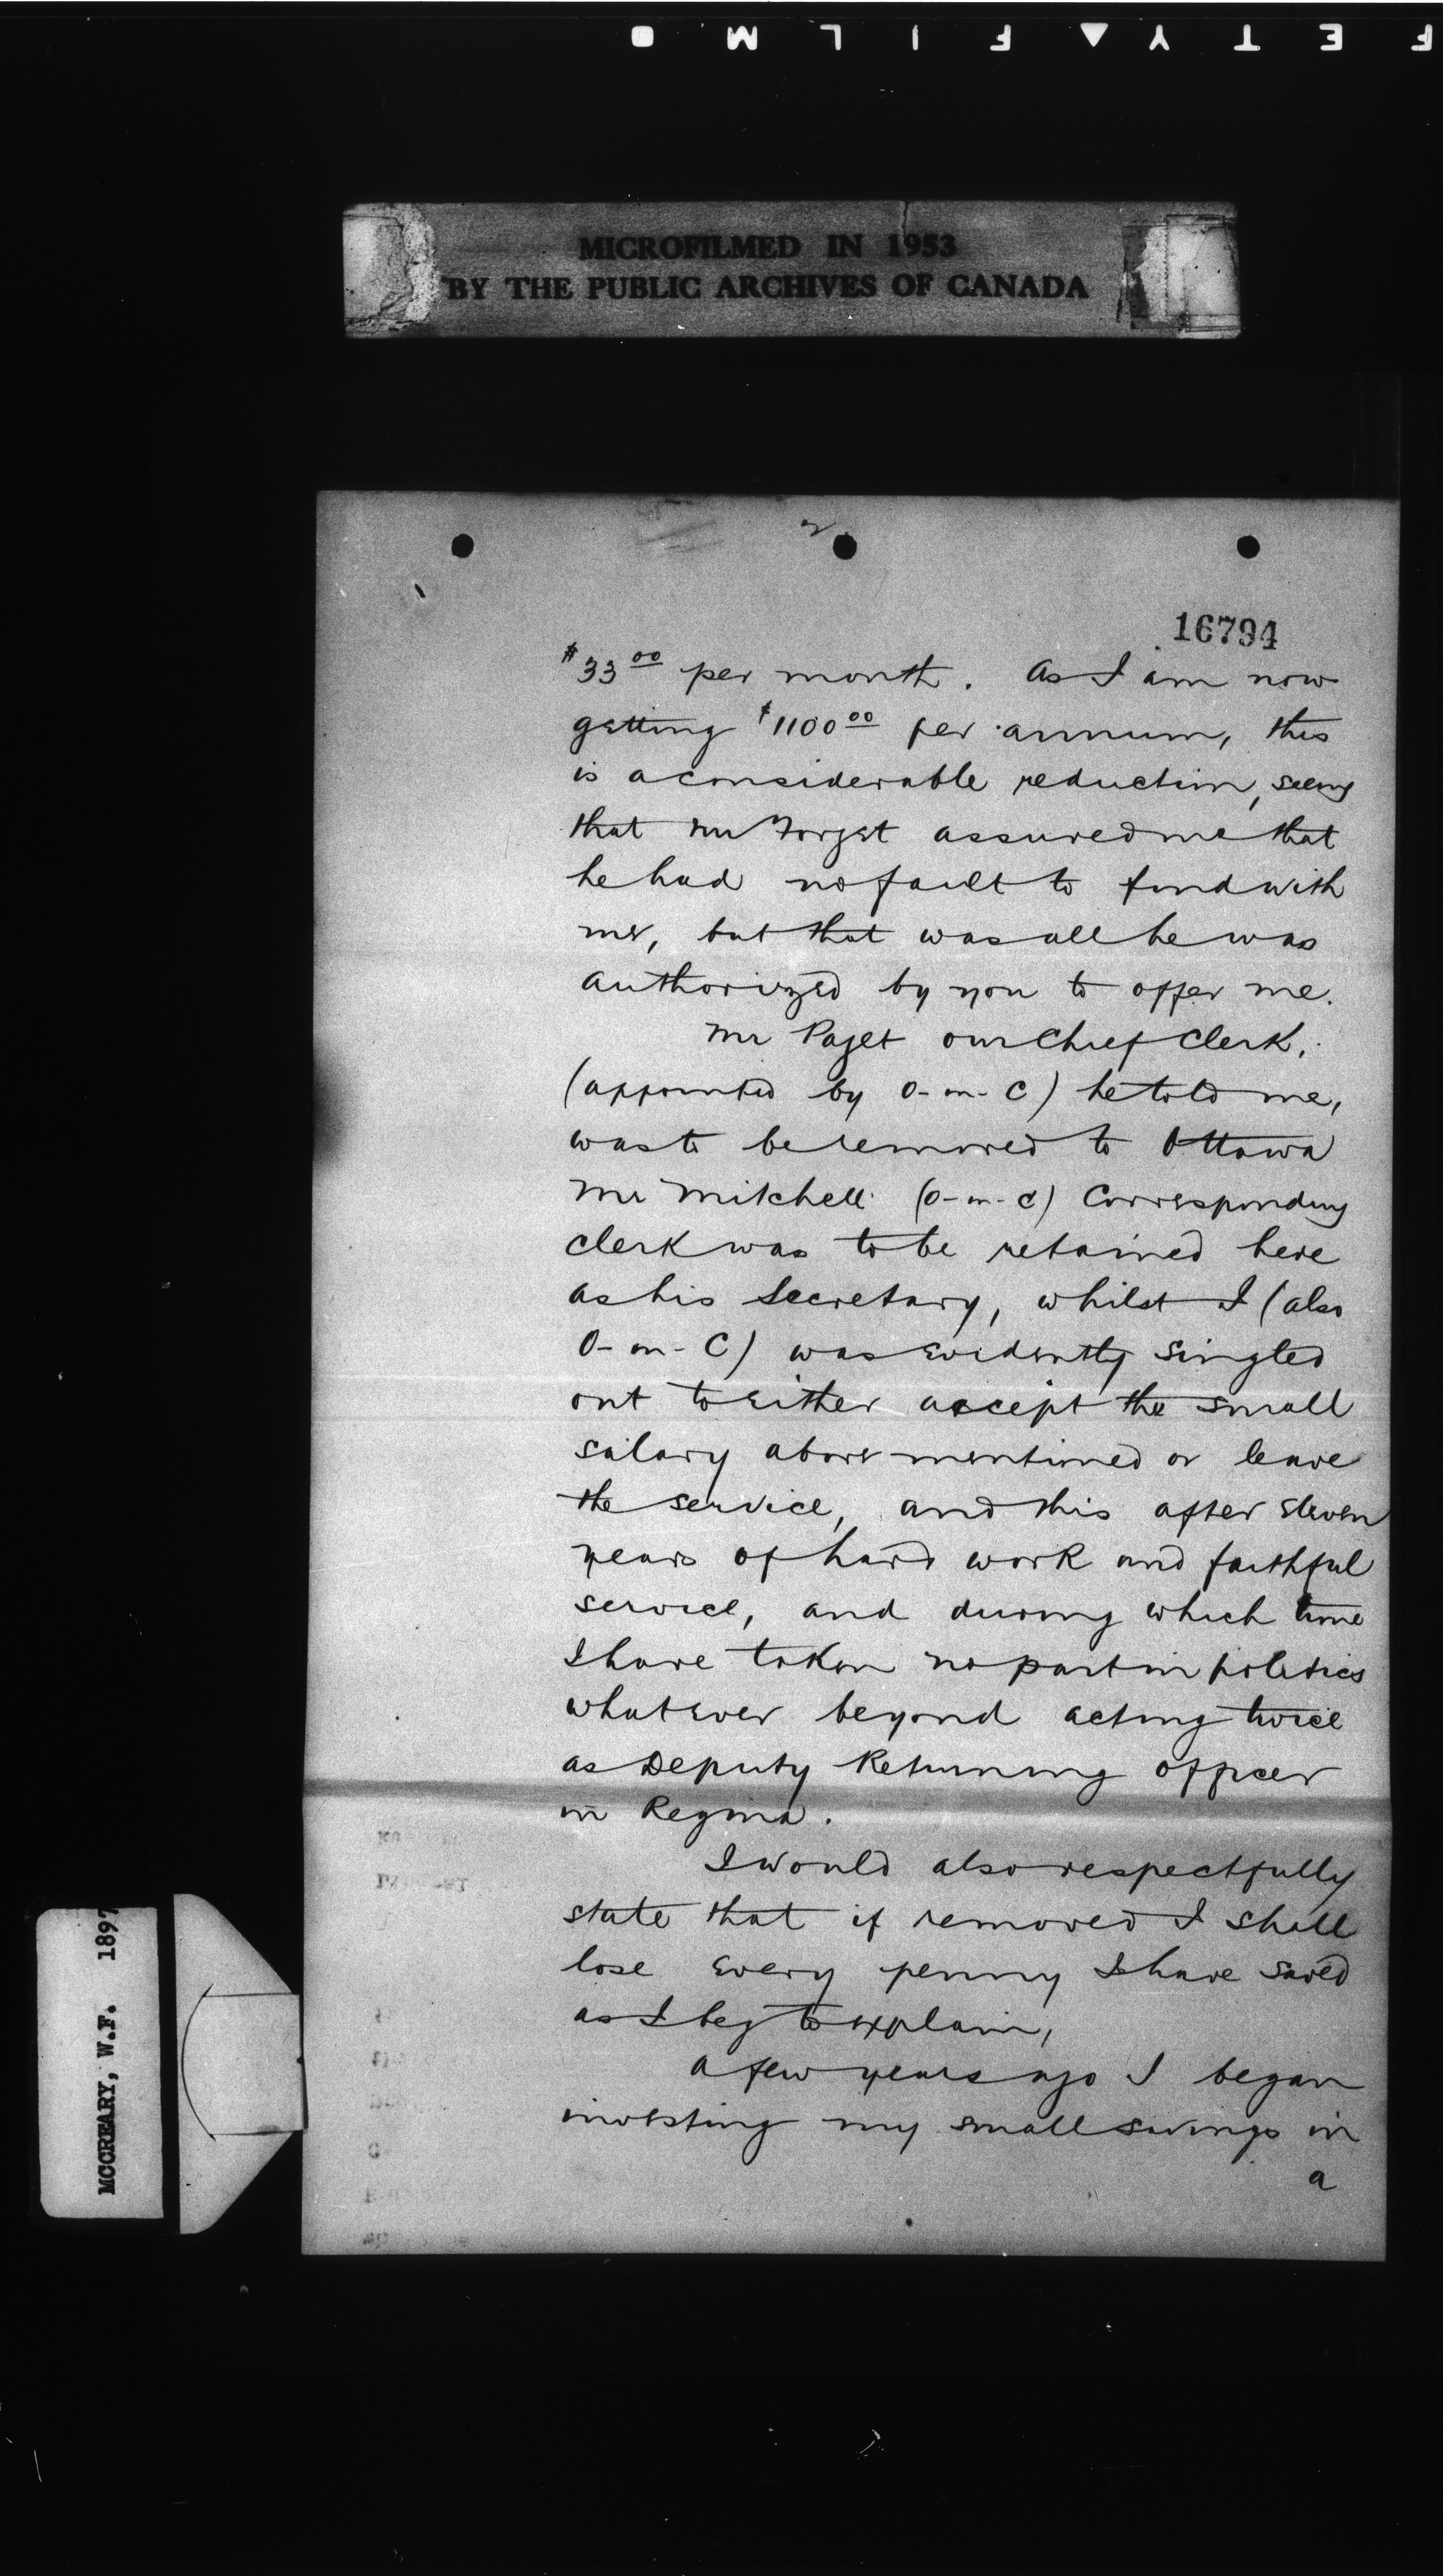 F E T Y ▲ F I L M ■
MICROFILMED IN 1953
BY THE PUBLIC ARCHIVES OF CANADA
2.
16794
$33.00 per month. As I am now
getting $1100.00 per annum, this
is a considerable reduction, seeing
that Mr Forget assured me that
he had no fault to find with
me, but that was all he was
authorized by you to offer me.
Mr Paget our Chief Clerk,
(appointed by O-in-C) he told me,
was to be removed to Ottawa
Mr Mitchell (O-in-C) Corresponding
clerk was to be retained here
as his Secretary, whilst I (also
O-in-C) was evidently singled
out to either accept the small
salary above mentioned or leave
the service, and this after eleven
years of hard work and faithful
service, and during which time
I have taken no part in politics
whatever beyond acting twice
as Deputy Returning officer
in Regina.
I would also respectfully
state that if removed I shall
lose every penny I have saved
as I beg to explain,
A few years ago I began
investing my small savings in
a
MCCREARY, W.F. 1897